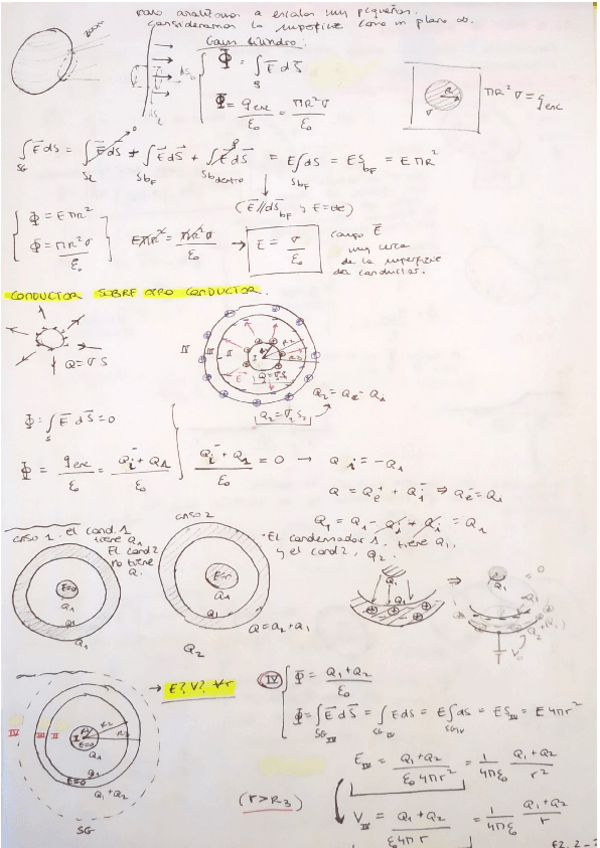 analizamos a escalas muy pequeñas.
consideramos la superficie como un plano ∞.
zoom
Gauss cilindro:
Φ = ∫_S E dS
Φ = q_enc/ε₀ = πR²σ/ε₀
πR²σ = q_enc
∫_SG E dS = ∫_SL E dS + ∫_SbF E dS + ∫_Sb dentro E dS = E∫_SbF dS = E S_bF = E πR²
(E // dS_bF y E = cte)
Φ = E πR²
Φ = πR²σ/ε₀
EπR² = πR²σ/ε₀ → E = σ/ε₀
campo E
muy cerca
de la superficie
del conductor.
CONDUCTOR SOBRE OTRO CONDUCTOR.
Q = σS
IV III II I
Q₂ = σ₂S₂
Φ = ∫_S E dS = 0
Φ = q_enc/ε₀ = (Q_i⁻ + Q₁)/ε₀
(Q_i⁻ + Q₁)/ε₀ = 0 → Q_i⁻ = -Q₁
Q = Q_e⁺ + Q_i⁻ ⇒ Q_e = Q₁
CASO 1. el cond. 1
tiene Q₁
El cond 2
no tiene
Q.
CASO 2
El condensador 1, tiene Q₁.
y el cond 2, Q₂.
E=0
Q₁
Q₁
E=0
Q₁
Q = Q₂ + Q₁
Q₂
Q₁
⇒
Q₁
= 0
→ E? V? ∀r
IV III II I
R₂
E=0
Q₁
E=0
Q₁ + Q₂
SG
IV
Φ = (Q₁ + Q₂)/ε₀
Φ = ∫_SG E dS = ∫_SG E dS = E∫_SG dS = E S_IV = E 4πr²
E_IV = (Q₁ + Q₂)/(ε₀ 4πr²) = 1/(4πε₀) (Q₁ + Q₂)/r²
(r > R₃)
V_IV = (Q₁ + Q₂)/(ε₀ 4π r) = 1/(4πε₀) (Q₁ + Q₂)/r